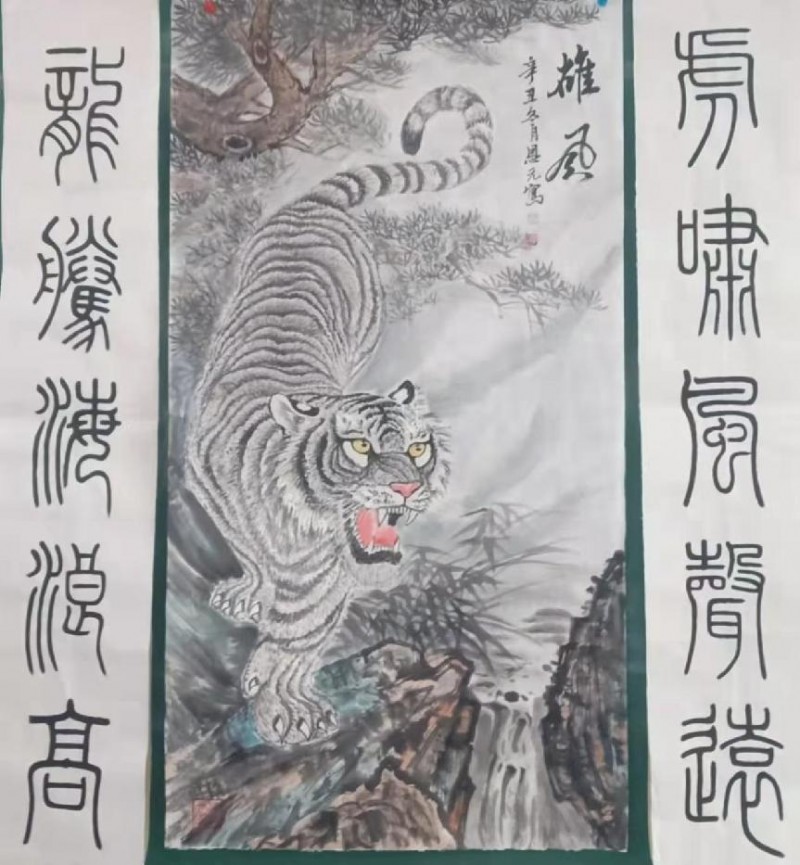 虎嘯風聲遠
雄风
辛丑冬月恩元寫
龍騰海浪高